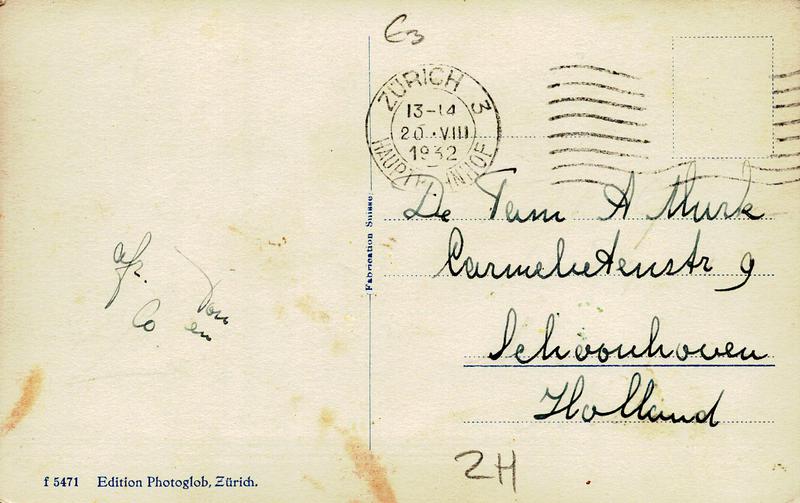 G3
ZÜRICH 3
13-14
20.VIII
1932
HAUPTBAHNHOF
De Fam A Murk
Carmelietenstr 9
Schoonhoven
Holland
ZH
afz.
Co en
Fabrication Suisse
f 5471 Edition Photoglob, Zürich.